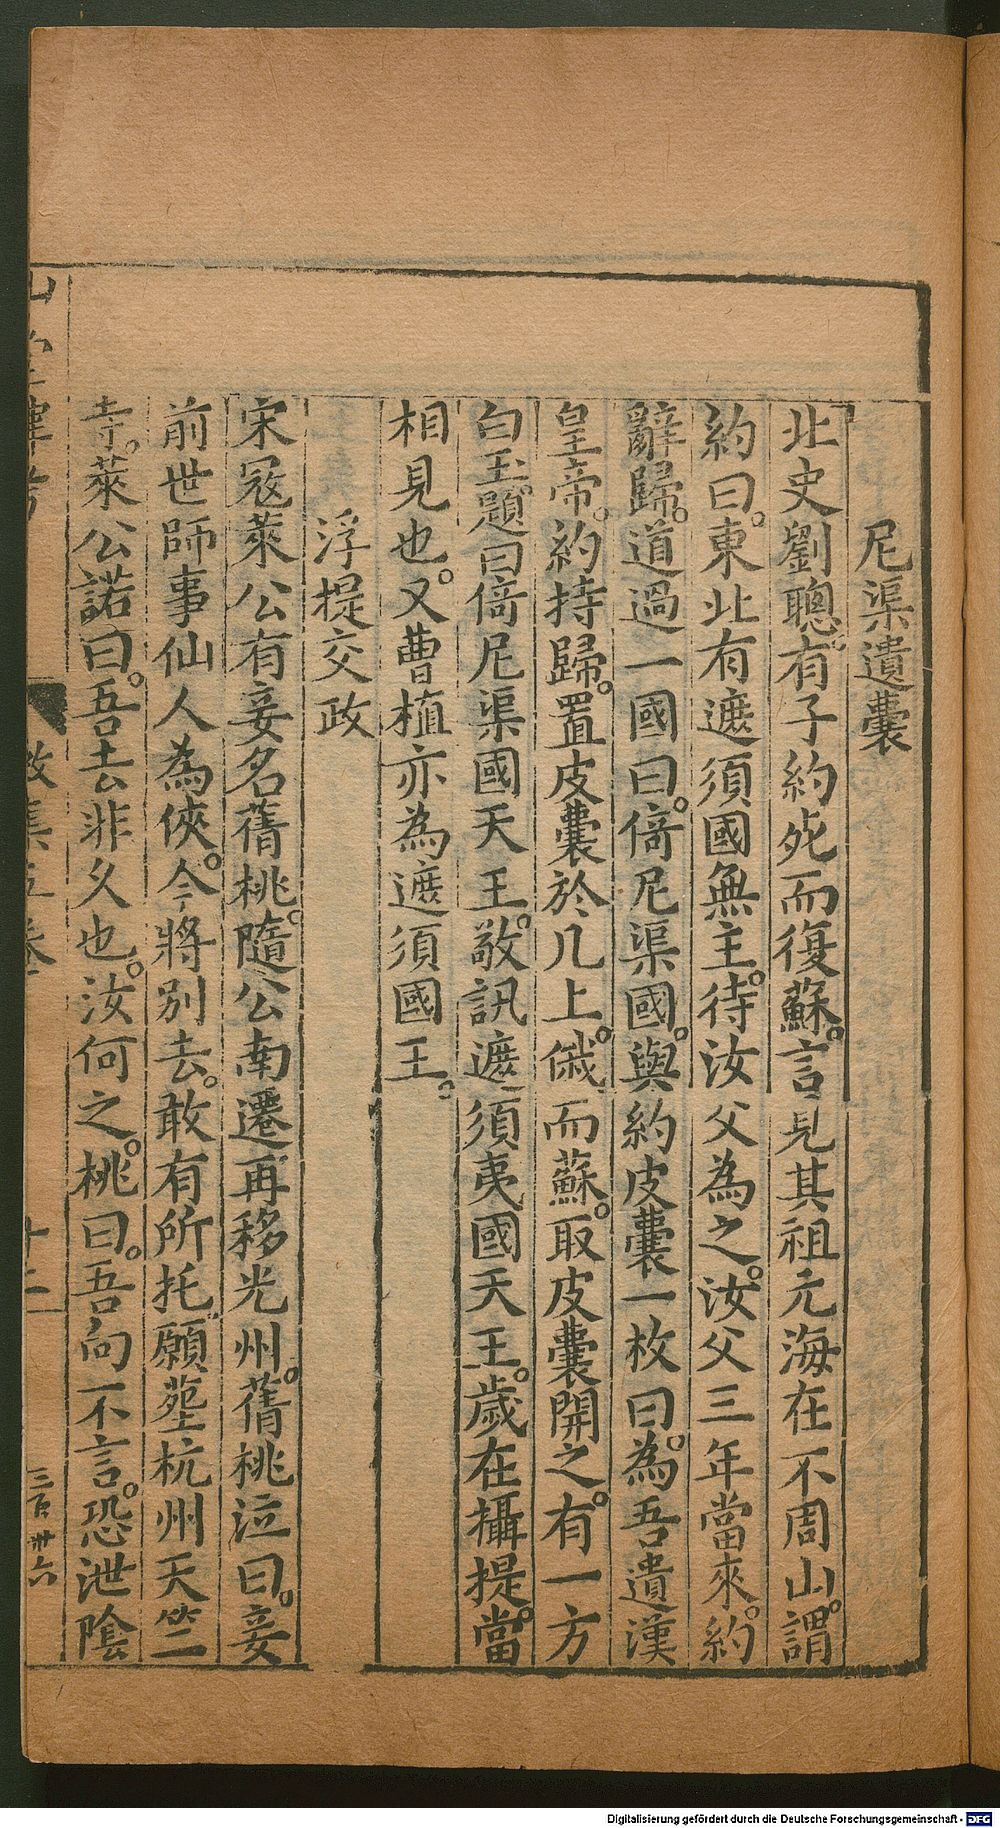 尼渠遺囊
北史劉聰有子約死而復蘇。言見其祖元海在不周山。謂
約曰。東北有遮須國無主。待汝父為之。汝父三年當來。約
辭歸。道過一國曰。猗尼渠國。與約皮囊一枚曰。為吾遺漢
皇帝。約持歸。置皮囊於几上。俄而蘇。取皮囊開之。有一方
白玉。題曰猗尼渠國天王。敬訊遮須夷國天王。歲在攝提。當
相見也。又曹植亦為遮須國王。
浮提交政
宋寇萊公有妾名蒨桃。隨公南遷再移光州。蒨桃泣曰。妾
前世師事仙人為俠。今將別去。敢有所托。願葬杭州天竺
寺。萊公諾曰。吾去非久也。汝何之。桃曰。吾向不言。恐泄陰
山堂肆考
徵集五卷
十二
三百卅六
Digitalisierung gefördert durch die Deutsche Forschungsgemeinschaft - DFG